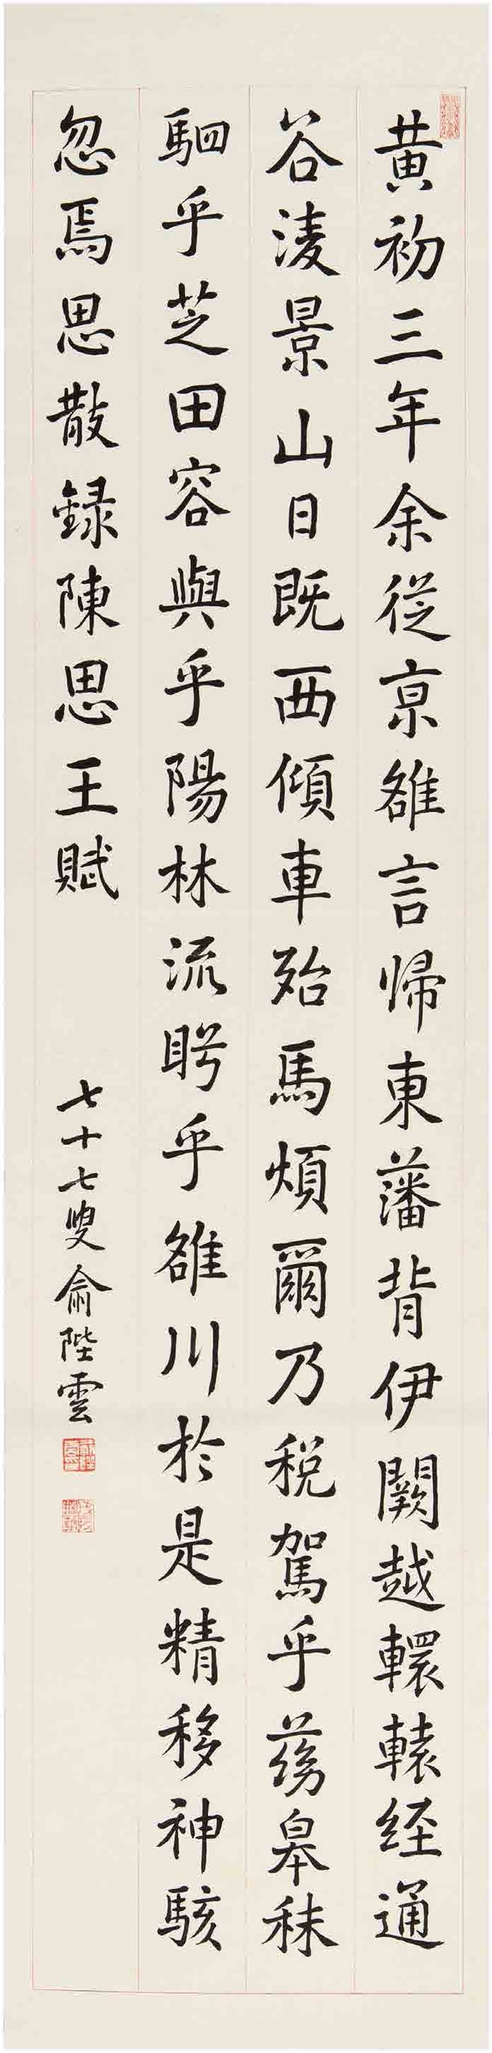 黄初三年余從京雒言歸東藩背伊闕越轘轅経通
谷淩景山日既西傾車殆馬煩爾乃税駕乎蘅皋秣
駟乎芝田容與乎陽林流眄乎雒川於是精移神駭
忽焉思散録陳思王賦
七十七叟俞陛雲